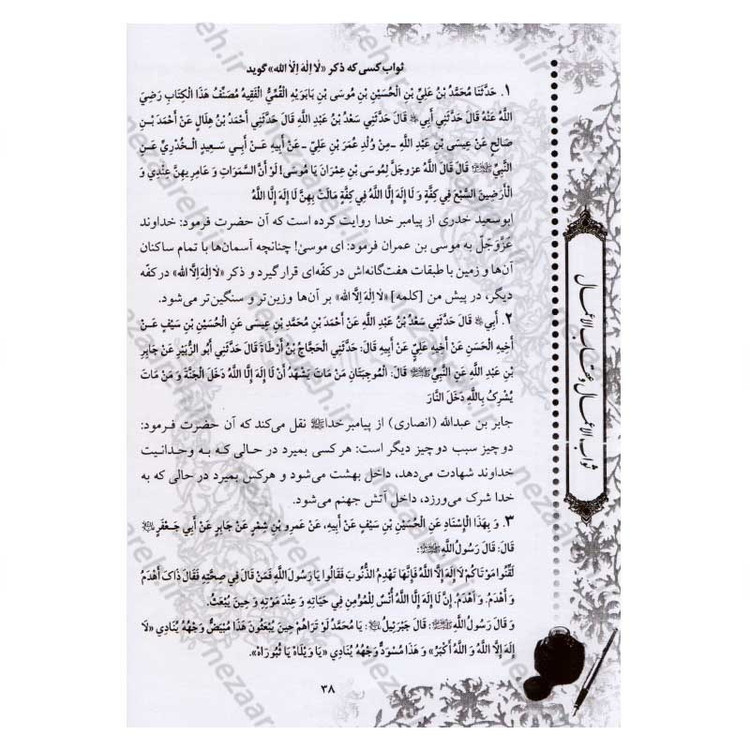 ثواب کسی که ذکر «لَا اِلَهَ اِلاَ الله» گوید
۱. حَدَّثَنَا مُحَمَّدُ بْنُ عَلِيِّ بْنِ الْحُسَيْنِ بْنِ مُوسَى بْنِ بَابَوَيْهِ الْقُمِّيُّ الْفَقِيهُ مُصَنِّفُ هَذَا الْكِتَابِ رَضِيَ
اللَّهُ عَنْهُ قَالَ حَدَّثَنِي أَبِي قَالَ حَدَّثَنِي سَعْدُ بْنُ عَبْدِ اللَّهِ قَالَ حَدَّثَنِي أَحْمَدُ بْنُ هِلَالٍ عَنْ أَحْمَدَ بْنِ
صَالِحٍ عَنْ عِيسَى بْنِ عَبْدِ اللَّهِ ـ مِنْ وُلْدِ عُمَرَ بْنِ عَلِيٍّ ـ عَنْ أَبِيهِ عَنْ أَبِي سَعِيدٍ الْخُدْرِيِّ عَنِ
النَّبِيِّ ﷺ قَالَ قَالَ اللَّهُ عزوجلَّ لِمُوسَى بْنِ عِمْرَانَ يَا مُوسَى! لَوْ أَنَّ السَّمَوَاتِ وَ عَامِرِيهِنَّ عِنْدِي وَ
الْأَرَضِينَ السَّبْعَ فِي كِفَّةٍ وَ لَا إِلَهَ إِلَّا اللَّهُ فِي كِفَّةٍ مَالَتْ بِهِنَّ لَا إِلَهَ إِلَّا اللَّهُ
ابوسعید خدری از پیامبر خدا روایت کرده است که آن حضرت فرمود: خداوند
عَزَّوَجَلَّ به موسی بن عمران فرمود: ای موسیٰ! چنانچه آسمان‌ها با تمام ساکنان
آن‌ها و زمین با طبقات هفت‌گانه‌اش در کفّه‌ای قرار گیرد و ذکر «لَا اِلَهَ اِلَّا الله» در کفّه
دیگر، در پیش من [کلمه] «لَا اِلَهَ اِلَّا الله» بر آن‌ها وزین‌تر و سنگین‌تر می‌شود.
۲. أَبِي قَالَ حَدَّثَنِي سَعْدُ بْنُ عَبْدِ اللَّهِ عَنْ أَحْمَدَ بْنِ مُحَمَّدِ بْنِ عِيسَى عَنِ الْحُسَيْنِ بْنِ سَيْفٍ عَنْ
أَخِيهِ الْحَسَنِ عَنْ أَخِيهِ عَلِيٍّ عَنْ أَبِيهِ قَالَ: حَدَّثَنِي الْحَجَّاجُ بْنُ أَرْطَاةَ قَالَ حَدَّثَنِي أَبُو الزُّبَيْرِ عَنْ جَابِرِ
بْنِ عَبْدِ اللَّهِ عَنِ النَّبِيِّ ﷺ قَالَ: الْمُوجِبَتَانِ مَنْ مَاتَ يَشْهَدُ أَنْ لَا إِلَهَ إِلَّا اللَّهُ دَخَلَ الْجَنَّةَ وَ مَنْ مَاتَ
يُشْرِكُ بِاللَّهِ دَخَلَ النَّارَ
جابر بن عبدالله (انصاری) از پیامبر خدا ﷺ نقل می‌کند که آن حضرت فرمود:
دو چیز سبب دو چیز دیگر است: هر کسی بمیرد در حالی که به وحدانیت
خداوند شهادت می‌دهد، داخل بهشت می‌شود و هرکس بمیرد در حالی که به
خدا شرک می‌ورزد، داخل آتش جهنم می‌شود.
۳. وَ بِهَذَا الْإِسْنَادِ عَنِ الْحُسَيْنِ بْنِ سَيْفٍ عَنْ أَبِيهِ، عَنْ عَمْرِو بْنِ شِمْرٍ عَنْ جَابِرٍ عَنْ أَبِي جَعْفَرٍ
قَالَ: قَالَ رَسُولُ اللَّهِ ﷺ:
لَقِّنُوا مَوْتَاكُمْ لَا إِلَهَ إِلَّا اللَّهُ فَإِنَّهَا تَهْدِمُ الذُّنُوبَ فَقَالُوا يَا رَسُولَ اللَّهِ فَمَنْ قَالَ فِي صِحَّتِهِ فَقَالَ ذَاکَ أَهْدَمُ
وَ أَهْدَمُ. وَ أَهْدَمُ. إِنَّ لَا إِلَهَ إِلَّا اللَّهُ أُنْسٌ لِلْمُؤْمِنِ فِي حَيَاتِهِ وَ عِنْدَ مَوْتِهِ وَ حِينَ يُبْعَثُ.
وَ قَالَ رَسُولُ اللَّهِ ﷺ: قَالَ جَبْرَئِيلُ: يَا مُحَمَّدُ لَوْ تَرَاهُمْ حِينَ يُبْعَثُونَ هَذَا مُبْيَضٌّ وَجْهُهُ يُنَادِي «لَا
إِلَهَ إِلَّا اللَّهُ وَ اللَّهُ أَكْبَرُ» وَ هَذَا مُسْوَدٌّ وَجْهُهُ يُنَادِي «يَا وَيْلَاهْ يَا ثُبُورَاهْ».
۳۸
ثواب الاعمال و عقاب الاعمال
nezaareh.ir